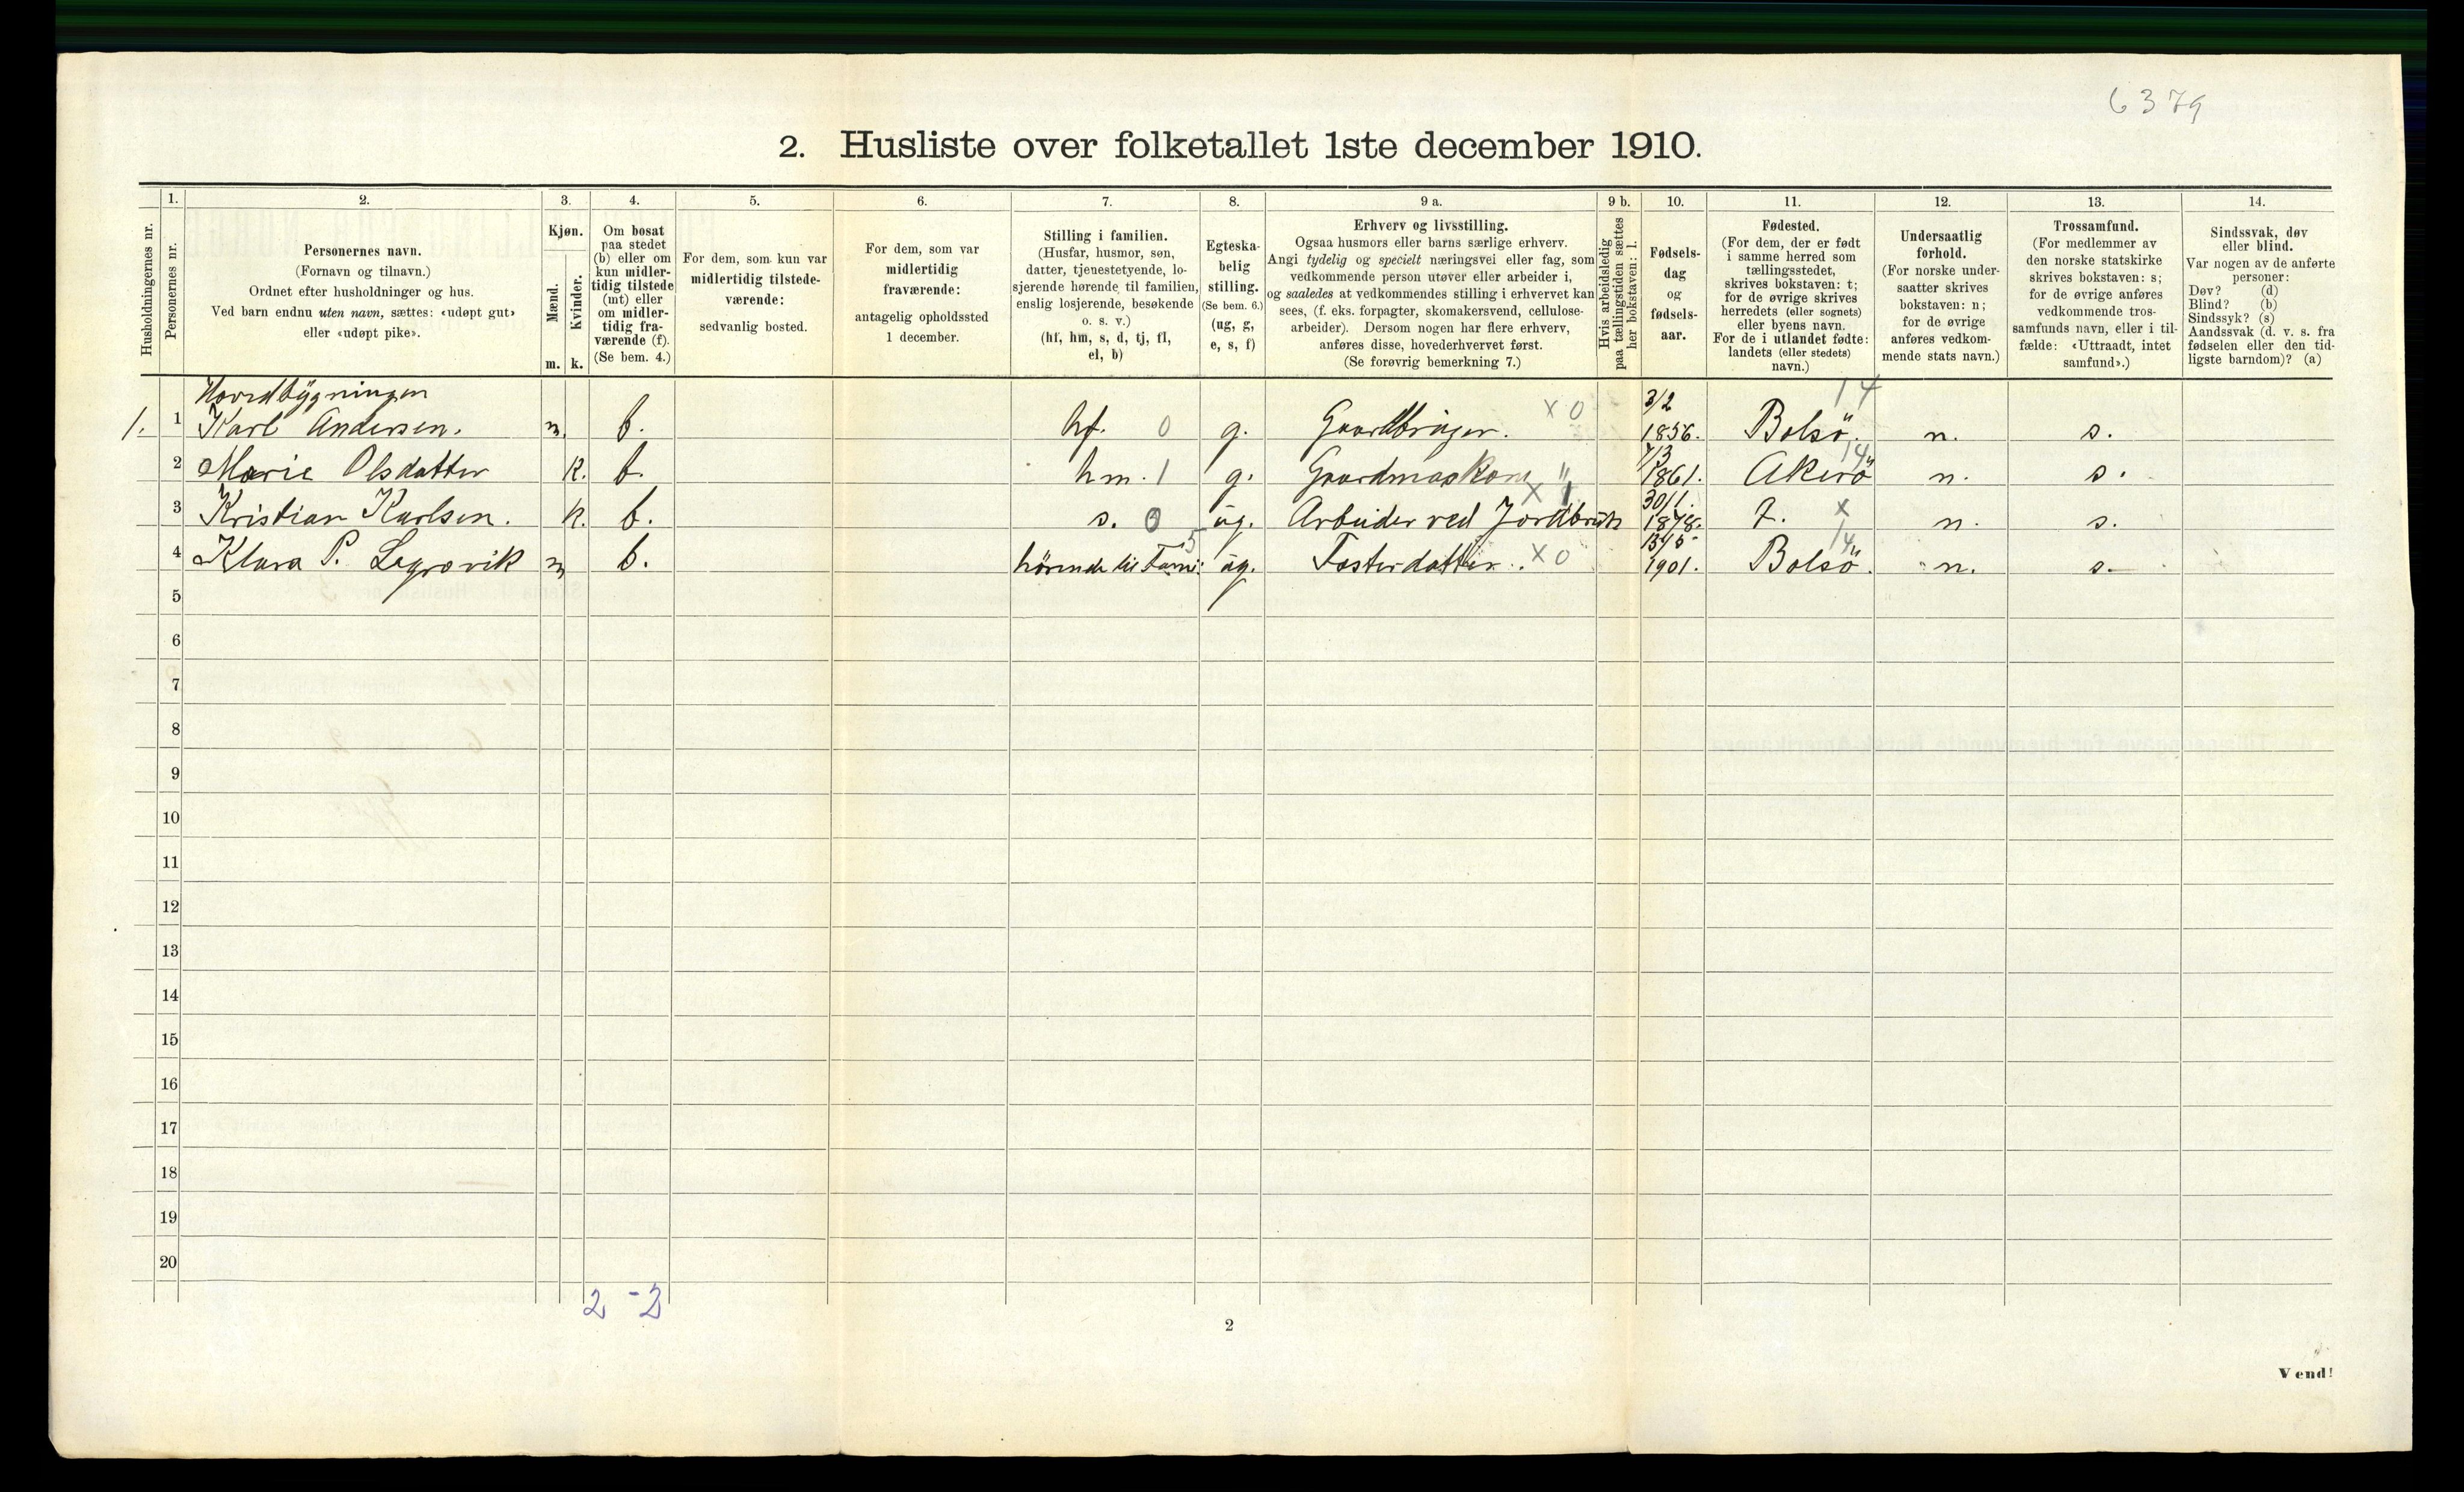 6379
2. Husliste over folketallet 1ste december 1910.
Husholdningernes nr.
1.
Personernes nr.
2.
Personernes navn.
(Fornavn og tilnavn.)
Ordnet efter husholdninger og hus.
Ved barn endnu uten navn, sættes: «udøpt gut»
eller «udøpt pike».
3.
Kjøn.
Mænd.
Kvinder.
m. k.
4.
Om bosat
paa stedet
(b) eller om
kun midler-
tidig tilstede
(mt) eller
om midler-
tidig fra-
værende (f).
(Se bem. 4.)
5.
For dem, som kun var
midlertidig tilstede-
værende:
sedvanlig bosted.
6.
For dem, som var
midlertidig
fraværende:
antagelig opholdssted
1 december.
7.
Stilling i familien.
(Husfar, husmor, søn,
datter, tjenestetyende, lo-
sjerende hørende til familien,
enslig losjerende, besøkende
o. s. v.)
(hf, hm, s, d, tj, fl,
el, b)
8.
Egteska-
belig
stilling.
(Se bem. 6.)
(ug, g,
e, s, f)
9 a.
Erhverv og livsstilling.
Ogsaa husmors eller barns særlige erhverv.
Angi tydelig og specielt næringsvei eller fag, som
vedkommende person utøver eller arbeider i,
og saaledes at vedkommendes stilling i erhvervet kan
sees, (f. eks. forpagter, skomakersvend, cellulose-
arbeider). Dersom nogen har flere erhverv,
anføres disse, hovederhvervet først.
(Se forøvrig bemerkning 7.)
9 b.
Hvis arbeidsledig
paa tællingstiden sættes
her bokstaven: l.
10.
Fødsels-
dag
og
fødsels-
aar.
11.
Fødested.
(For dem, der er født
i samme herred som
tællingsstedet,
skrives bokstaven: t;
for de øvrige skrives
herredets (eller sognets)
eller byens navn.
For de i utlandet fødte:
landets (eller stedets)
navn.)
12.
Undersaatlig
forhold.
(For norske under-
saatter skrives
bokstaven: n;
for de øvrige
anføres vedkom-
mende stats navn.)
13.
Trossamfund.
(For medlemmer av
den norske statskirke
skrives bokstaven: s;
for de øvrige anføres
vedkommende tros-
samfunds navn, eller i til-
fælde: «Uttraadt, intet
samfund».)
14.
Sindssvak, døv
eller blind.
Var nogen av de anførte
personer:
Døv? (d)
Blind? (b)
Sindssyk? (s)
Aandssvak (d. v. s. fra
fødselen eller den tid-
ligste barndom)? (a)
Hovedbygningen 3/2 14
1. 1 Karl Andersen. m. b. hf. 0 g. Gaardbruger. x 0 1856. Bolsö. n. s.
2 Marie Olsdatter k. b. hm. 1 g. 1861. Akerö 14 n. s.
3 Kristian Karlsen. k. b. s. 0 ug. Arbeider ved Jordbruk x 1 30/1 1878. t. x n. s.
4 Klara P. Legrovik m b. hörende til Fami: 5 ug. Fosterdatter. x 0 1901. Bolsö. 14 n. s.
5
6
7
8
9
10
11
12
13
14
15
16
17
18
19
20
2 - 2
2
Vend!